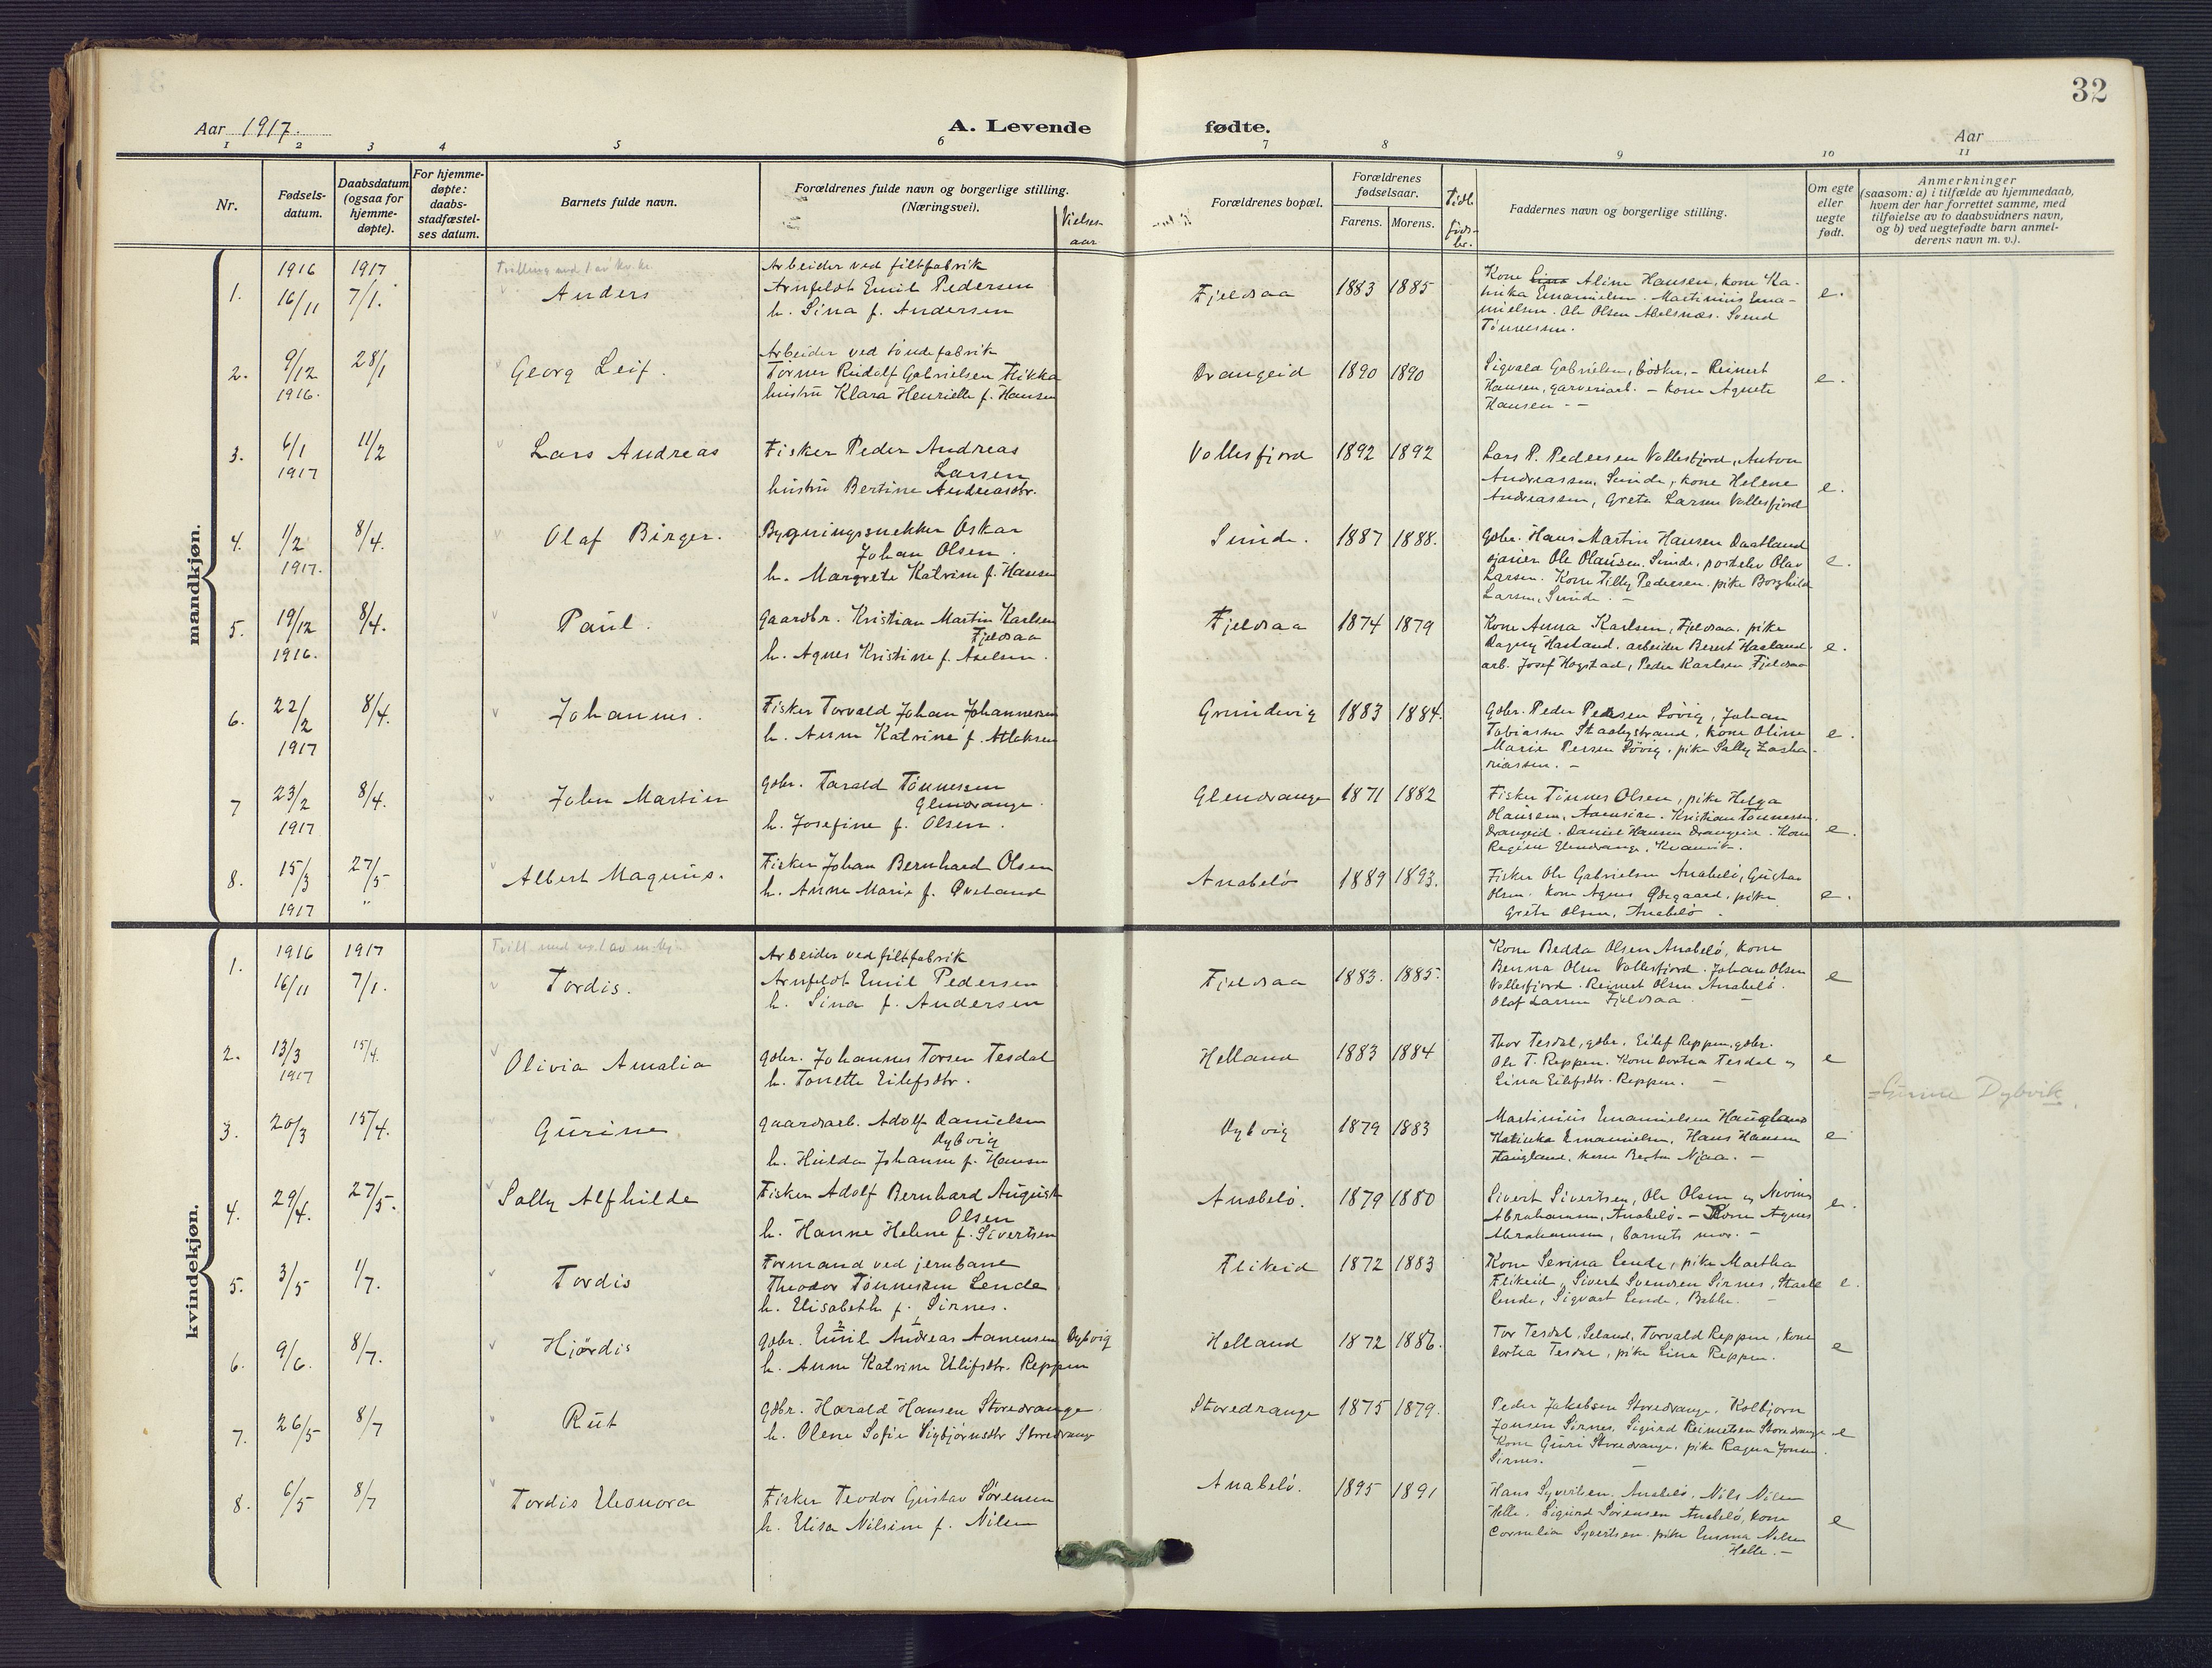 32
Aar 1917.
A. Levende
fødte.
Aar
1
2
3
4
5
6
7
8
9
10
11
Nr.
Fødsels-
datum.
Daabsdatum
(ogsaa for
hjemme-
døpte).
For hjemme-
døpte:
daabs-
stadfæstel-
ses datum.
Barnets fulde navn.
Forældrenes fulde navn og borgerlige stilling.
(Næringsvei).
Vielses-
aar
Forældrenes bopæl.
Forældrenes
fødselsaar.
Farens.
Morens.
Tidl.
føds-
br.
Faddernes navn og borgerlige stilling.
Om egte
eller
uegte
født.
Anmerkninger
(saasom: a) i tilfælde av hjemmedaab,
hvem der har forrettet samme, med
tilføielse av to daabsvidners navn,
og b) ved uegtefødte barn anmel-
derens navn m. v.).
mandkjøn.
1.
1916
16/11
1917
7/1.
Tvilling med 1 av kv. kj.
Anders
Arbeider ved filtfabrik
Arnfeldt Emil Pedersen
h. Sina f. Andersen
Fjeldsaa
1883
1885
Kone Aline Hansen, kone Ka-
tinka Emanuelsen. Martinius Ema-
nuelsen. Ole Olsen Abelsnæs. Svend
Tønnessen.
e.
2.
9/12
1916.
28/1
Georg Leif.
Arbeider ved tøndefabrik
Torner Rudolf Gabrielsen Flikka
hustru Klara Henriette f. Hansen
Drangeid
1890
1890
Sigvald Gabrielsen, bødker, - Reinert
Hansen, garveriarb. - kone Agnete
Hansen - -
e.
3.
6/1
1917
11/2
Lars Andreas
Fisker Peder Andreas
Larsen
hustru Bertine Andreasdtr.
Vollesfjord
1892
1892
Lars P. Pedersen Vollesfjord, Anton
Andreassen, Sunde, kone Helene
Andreassen, Grete Larsen Vollesfjord
e.
4.
1/2
1917.
8/4.
Olaf Birger.
Bygningssnekker Oskar
Johan Olsen.
h. Margrete Katrine f. Hansen
Sunde.
1887
1888.
Gdbr. Hans Martin Hansen Daatland
Ole Olausen, Sunde, postelev Olav
Larsen. Kone Tilly Pedersen. pike Borghild
Larsen, Sunde. -
e.
5.
19/12
1916.
8/4.
Paul.
Gaardbr. Kristian Martin Karlsen
Fjeldsaa
h. Agnes Kristine f. Axelsen.
Fjeldsaa
1874
1879
Kone Anna Karlsen, Fjeldsaa. pike
Dagny Hasland. arbeider Berent Hasland.
arb. Josef Hogstad, Peder Karlsen Fjeldsaa
e.
6.
22/2
1917
8/4.
Johannes.
Fisker Torvald Johan Johannessen
h. Anne Katrine f. Atlaksen
Grundvig
1883
1884.
Gdbr. Peder Pedersen Løvig, Johan
Tobiassen Staalystrand, kone Oline
Marie Persen Løvig, pike Sally Zacha-
riassen. -
e.
7
23/2
1917
8/4.
John Martin
Gdbr. Tarald Tønnesen
Glendrange.
h. Josefine f. Olsen.
Glendrange
1871
1882
Fisker Tønnes Olsen, pike Helga
Olausen, Aamsire. Kristian Tønnessen.
Drangeid. Daniel Hansen Drangeid. Kone
Regine Glendrange, Kvanvik.
e.
8.
15/3
1917
27/5
"
Albert Magnus.
Fisker Johan Bernhard Olsen
h. Anne Marie f. Øveland
Anabelø
1889
1893.
Fisker Ole Gabrielsen Anabelø, Gustav
Olsen. Kone Agnes Ødegaard, pike
Grete Olsen, Anabelø.
e.
kvindekjøn.
1.
1916
16/11
1917
7/1.
Tvill. med nr. 1 av m. kj.
Tordis.
Arbeider ved filtfabrik
Arnfeldt Emil Pedersen
h. Sina f. Andersen
Fjeldsaa
1883.
1885.
Kone Bedda Olsen Anabelø, kone
Benna Olsen Vollesfjord. Johan Olsen
Vollesfjord. Reinert Olsen Anabelø.
Olaf Larsen Fjeldsaa. -
e
2.
13/3
1917
15/4.
Olivia Amalia
Gdbr. Johannes Torsen Tesdal
h. Tonette Eilefsdtr.
Helland
1883
1884
Thor Tesdal, gdbr. Eilef Reppen, gdbr.
Ole T. Reppen. Kone Dortea Tesdal og
Lina Eilefsdtr. Reppen. -
e
3.
20/3
15/4.
Gurine
Gaardarb. Adolf Danielsen
Dybvig
h. Hulda Johanne f. Hansen
Dybvig
1879
1883
Martinius Emanuelsen Haugland
Katinka Emanuelsen, Hans Hansen
Haugland, kone Berta Njaa. -
e
= Gunne Dybvik
4.
29/4.
27/5.
Sally Alfhilde
Fisker Adolf Bernhard August
Olsen
h. Hanne Helene f. Sivertsen
Anabelø.
1879
1880
Sivert Sivertsen, Ole Olsen og Nevius
Abrahamsen, Anabelø. - Kone Agnes
Abrahamsen, barnets mor. -
e.
5.
3/5
1/7.
Tordis
Formand ved jernbane
Theodor Tønnessen Lende
h. Elisabeth f. Sirnes.
Flikeid
1872
1883
Kone Serina Lende, pike Martha
Flikeid, Sivert Svendsen Sirnes,
Lende, Sigvart Lende, Bakke. -
e.
6.
9/6.
8/7.
Hjørdis
2 1
Gdbr. Emil Andreas Aanensen Dybvig
h. Anne Katrine Eilifsdtr. Reppen
Helland
1872
1886.
Tor Tesdal, Seland, Torvald Reppen, kone
Dortea Tesdal, pike Lina Reppen.
e
7.
26/5
8/7
Rut
Gdbr. Harald Hansen Storedrange.
h. Olene Sofie Sigbjørnsdtr Storedrange
Storedrange
1875
1879.
Peder Jakobsen Storedrange, Kolbjørn
Jonsen Sirnes, Sigurd Reinertsen Storedrange
Kone Guri Storedrange, pike Ragna Jonsen
Sirnes. -
e
8.
6/5
8/7
Tordis Eleonora
Fisker Teodor Gustav Sørensen
h. Elisa Nilsine f. Nilsen
Anabelø.
1895
1891
Hans Syvertsen, Anabelø, Nils Nilsen
Helle. Sigurd Sørensen Anabelø, kone
Cornelia Syvertsen. pike Emma Nilsen
Helle. -
e